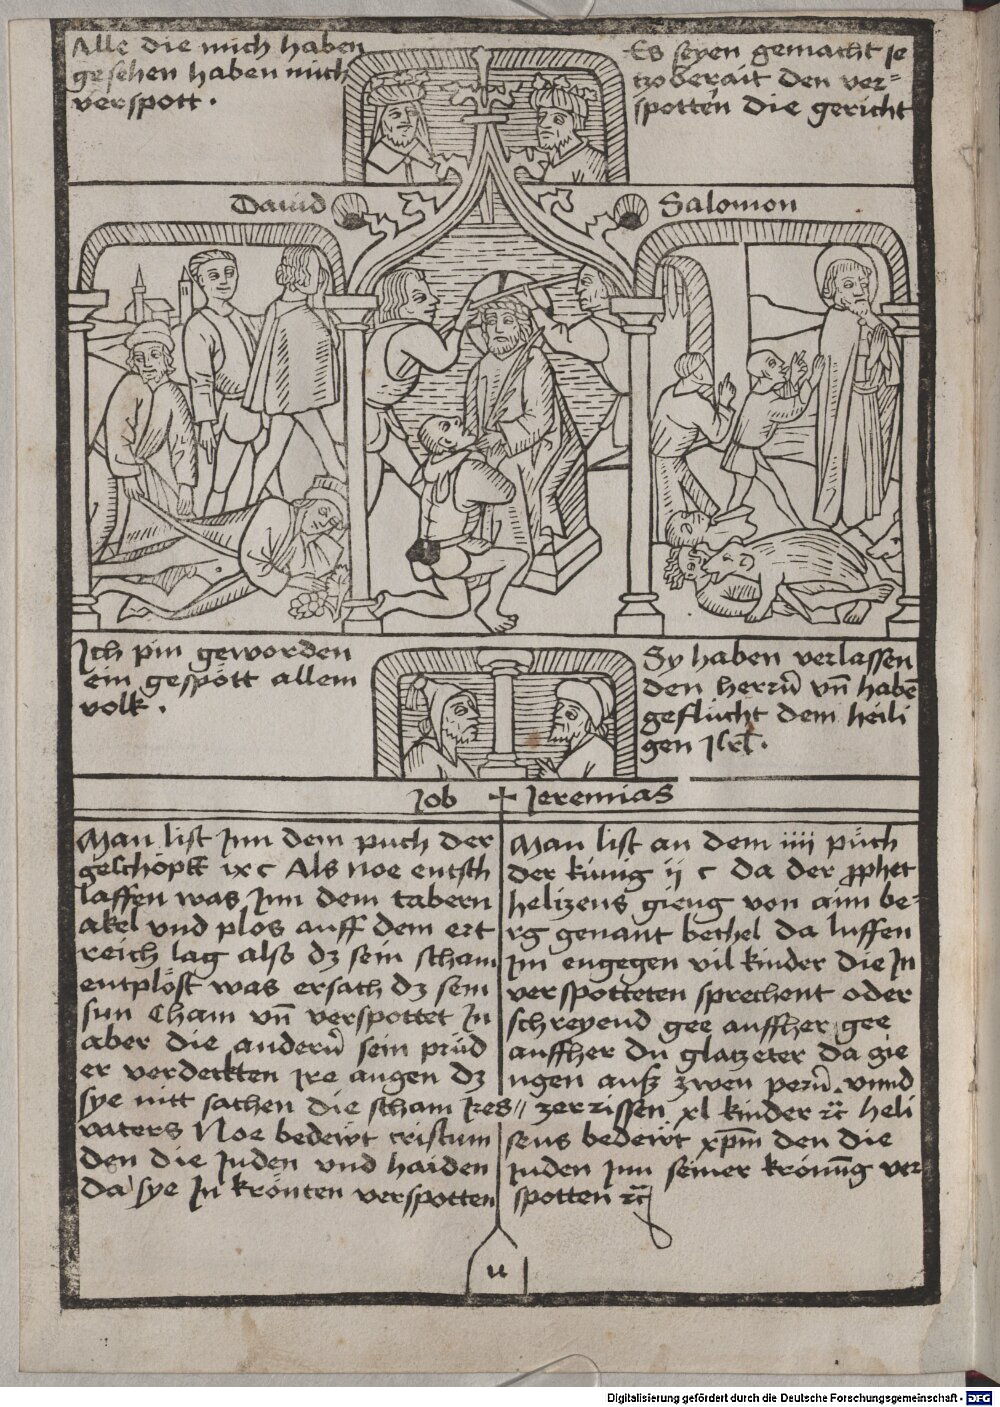 Alle die mich haben
gesehen haben mich
verspott.
Es seyen gemacht ie
tzo berait den ver=
spotten die gericht
Dauid
Salomon
Ich pin geworden
ein gespött allem
volk.
Sy haben verlassen
den herrn̄ vn̄ habē
geflücht dem heili
gen Isrl̄.
Iob + Ieremias
Man list Inn dem puch der
geschöpff ix c Als Noe entsch
laffen was Inn dem tabern
akel vnd plos auff dem ert
reich lag also dz sein scham
entplöst was ersach dz sein
sun Cham vn̄ verspottet In
aber die andern̄ sein prüd
er verdeckten ire augen dz
sye nitt sachen die scham Ires //
vaters Noe bedewt cristum
den die Juden vnd haiden
da sye In krönten verspotten
Man list an dem iiii püch
der künig ij c da der prophet
helizeus gieng von aim be=
rg genant bethel da luffen
Im engegen vil kinder die In
verspotteten sprechent oder
schreyend gee auffher gee
auffher du glatzeter da gie
ngen auß zwen pern̄ . vnnd
zerrissen xl kinder ꝛc̄ heli
seus bedewt xp̄m den die
Juden Inn seiner krönūg ver
spotten ꝛc̄
u
Digitalisierung gefördert durch die Deutsche Forschungsgemeinschaft - DFG